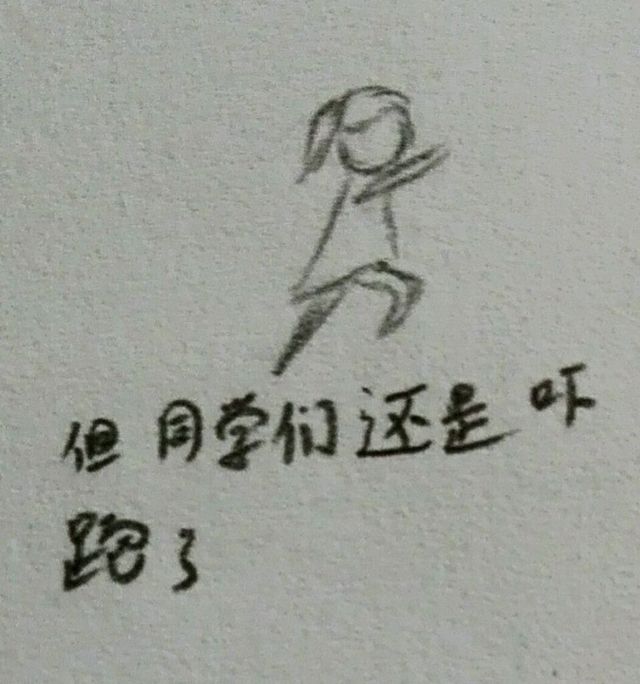 但同学们还是吓
跑了